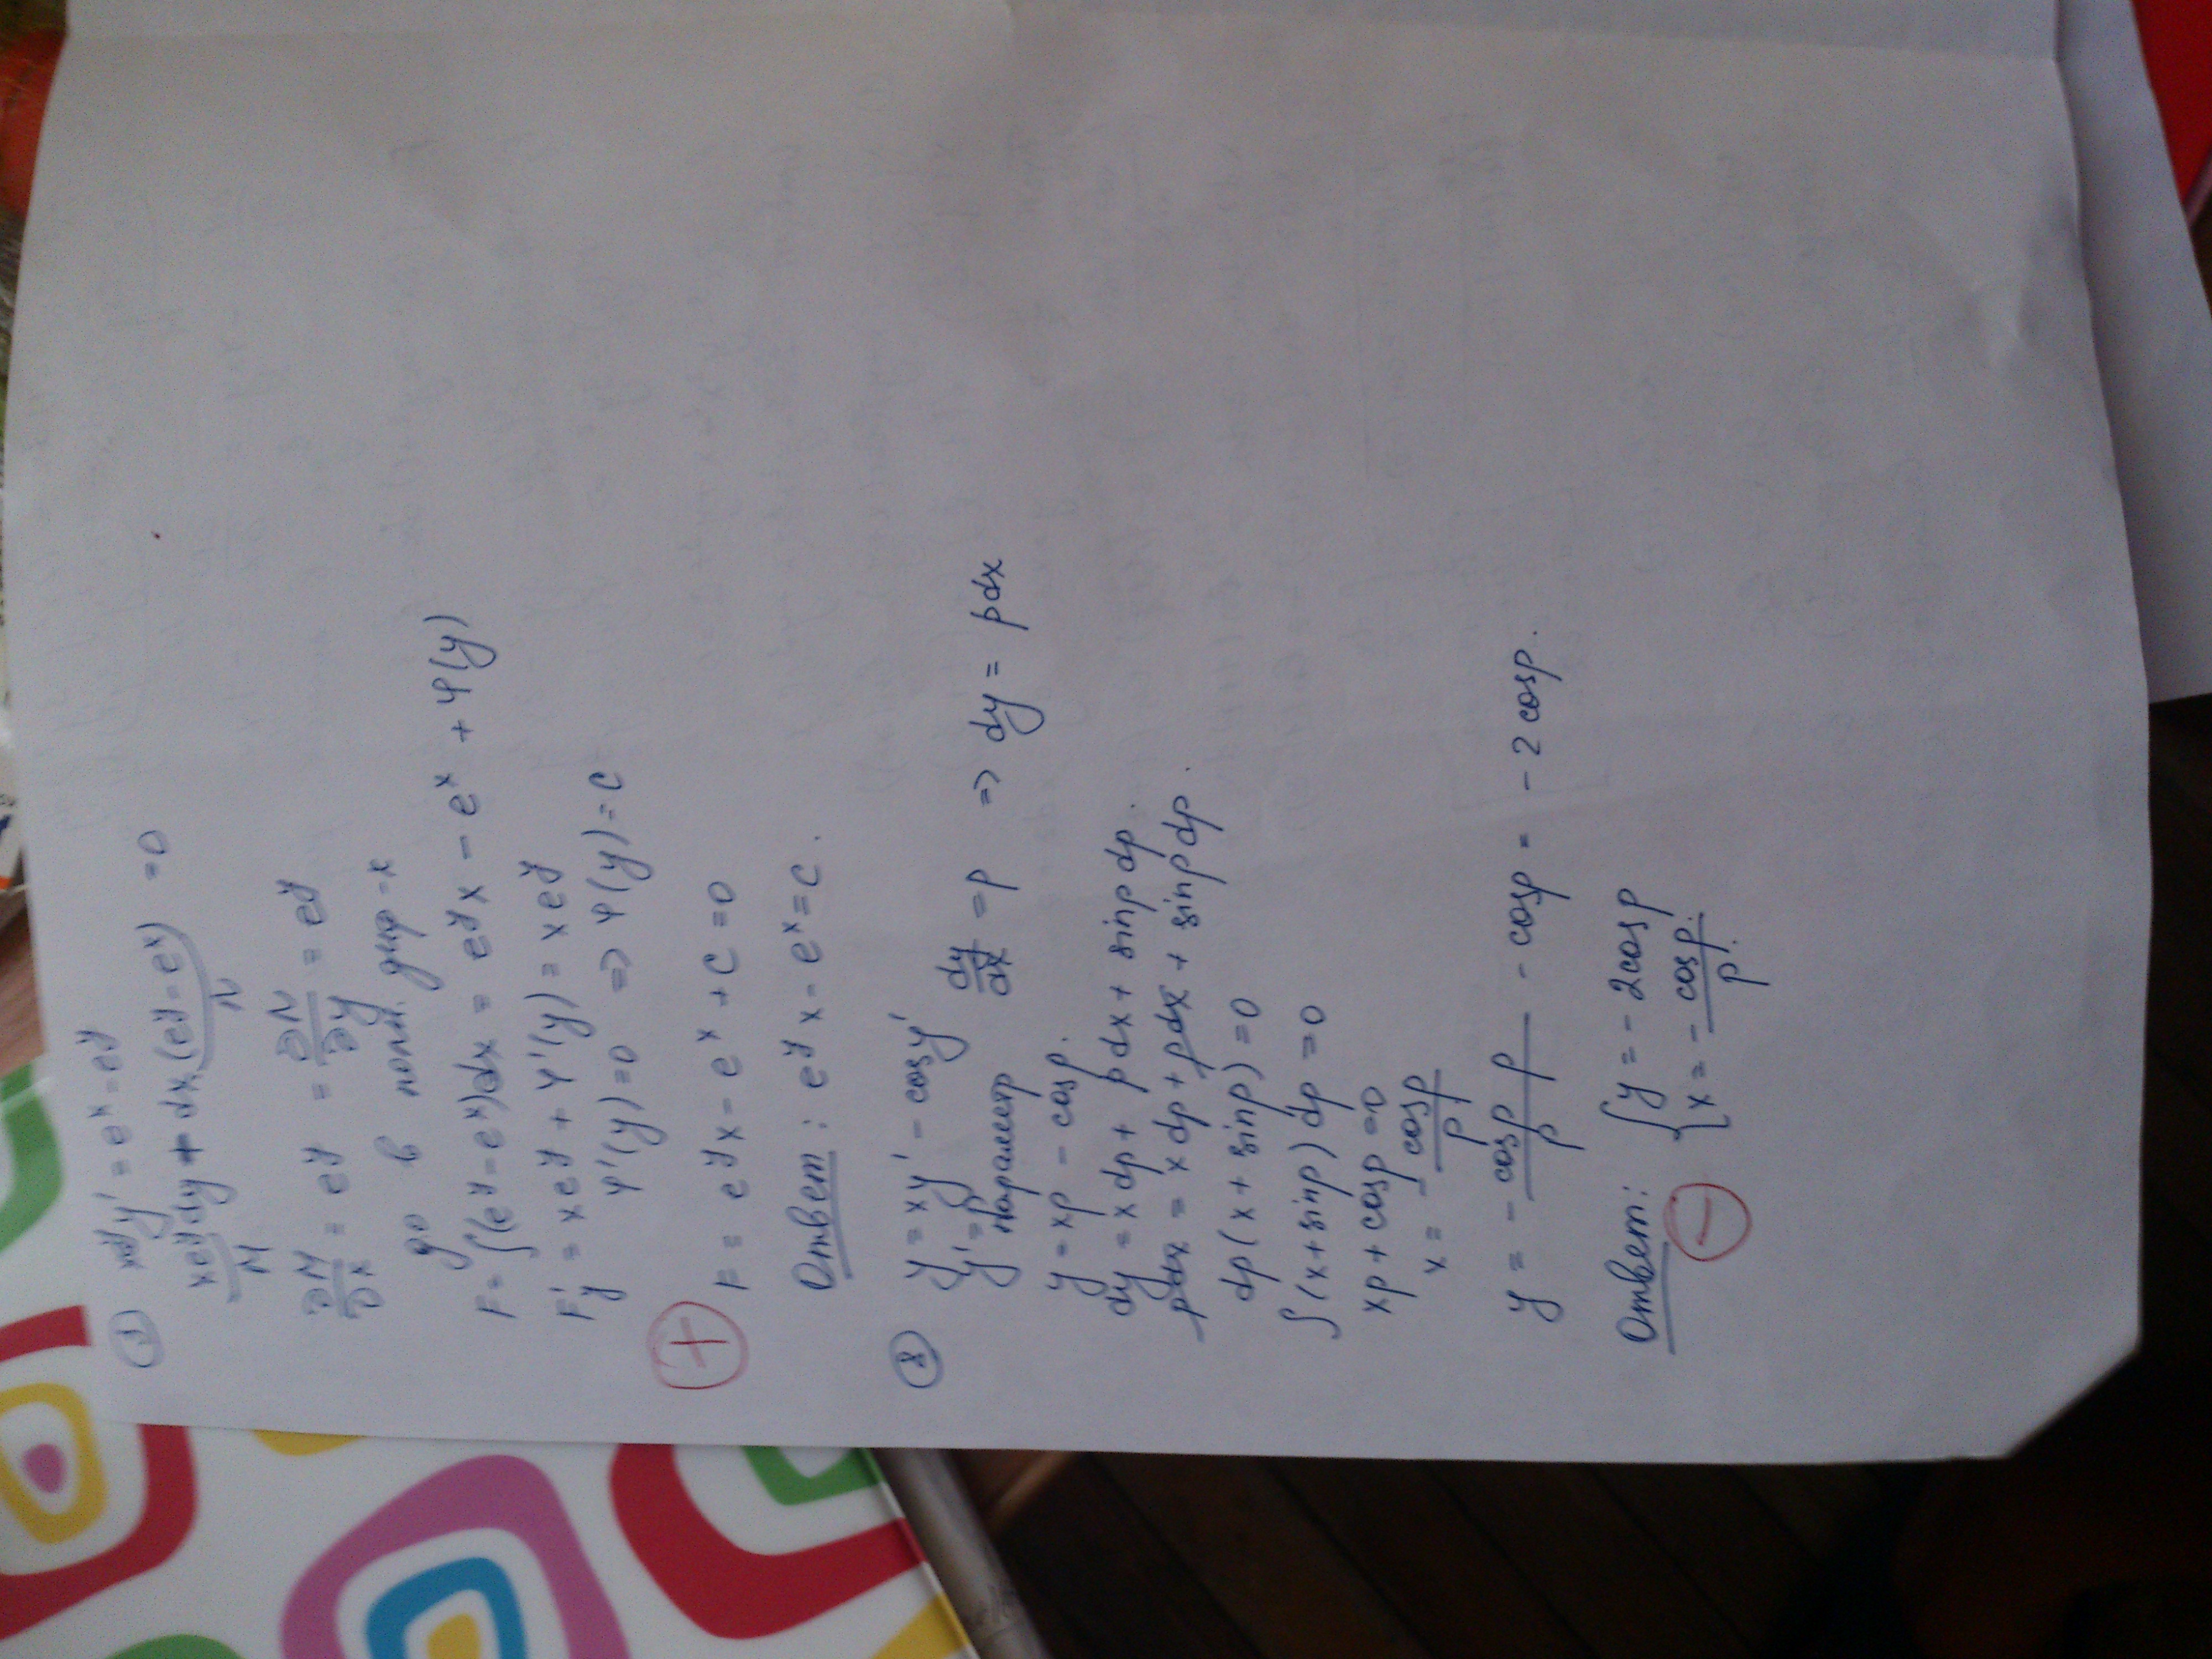 ① xe^y y' = e^x - e^y
xe^y dy + dx (e^y - e^x) = 0
M N
∂M/∂x = e^y = ∂N/∂y = e^y
ур в полн. диф-х
F = ∫(e^y - e^x)dx = e^y x - e^x + φ(y)
F'_y = xe^y + φ'(y) = xe^y
φ'(y) = 0 => φ(y) = C
+
F = e^y x - e^x + C = 0
Ответ: e^y x - e^x = C.
⑧ y = xy' - cosy'
y' = p dy/dx = p => dy = pdx
параметр
y = xp - cosp.
dy = xdp + pdx + sinpdp.
pdx = xdp + pdx + sinpdp.
dp(x + sinp) = 0
∫(x + sinp)dp = 0
xp + cosp = 0
x = - cosp/p
y = - cosp/p p - cosp = - 2cosp.
Ответ: { y = - 2cosp
x = - cosp/p.
−